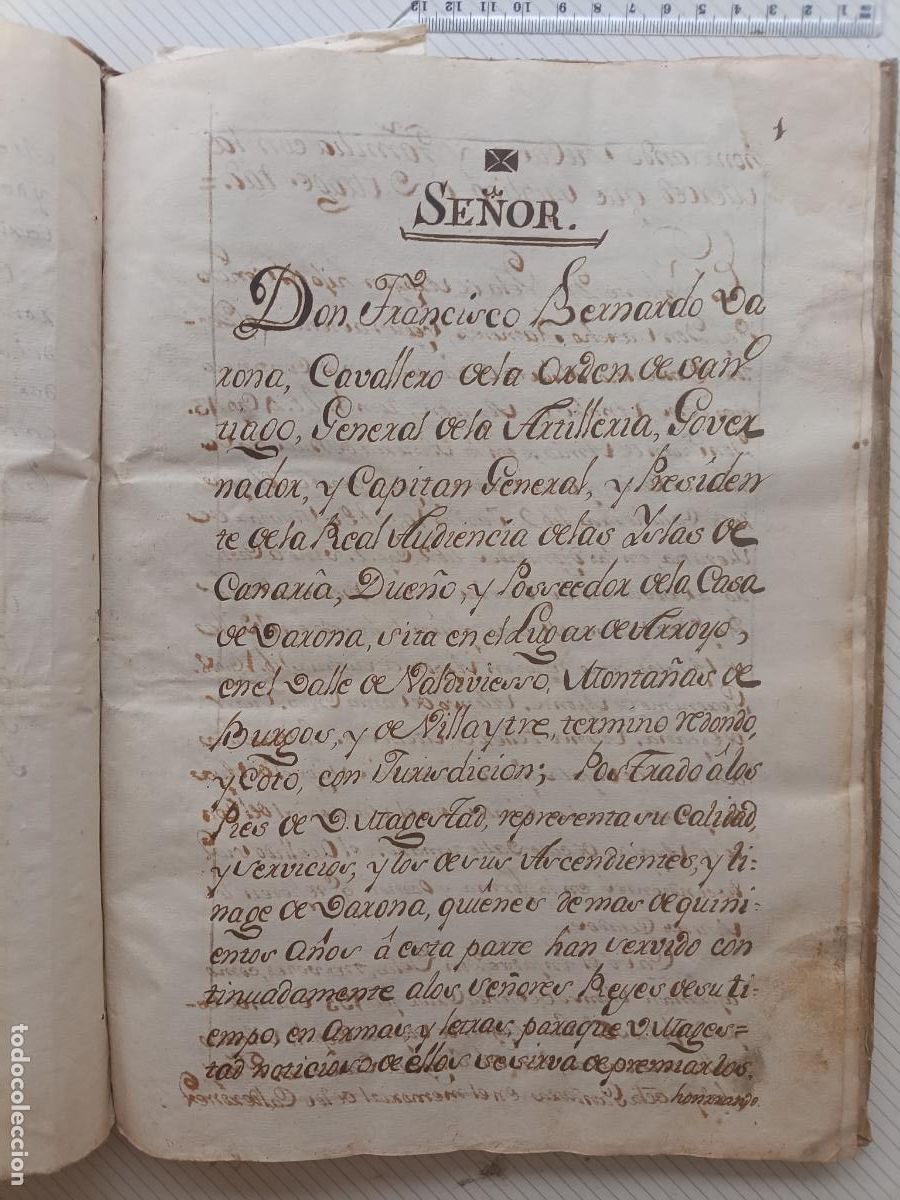 13 12 11 10 9 8 7 6 5 4 3 2 1
1
SEÑOR.
Don Francisco Bernardo Va
rona, Cavallero de la Orden de san
tiago, General de la Artilleria, Gover
nador, y Capitan General, y Presiden
te de la Real Audiencia de las Yslas de
Canaria, Dueño, y Posseedor de la Casa
de Varona, sita en el Lugar de Arroyo,
en el Valle de Valdiviesso, Montañas de
Burgos, y de Villaytre, termino redondo,
y Coto, con Jurisdicion; Postrado á los
Pies de V. Magestad, representa su Calidad,
y servicios, y los de sus Ascendientes, y li-
nage de Varona, quienes de mas de quini-
entos Años â esta parte han servido con
tinuadamente a los señores Reyes de su ti-
empo, en Armas, y letras, para que V. Mages=
tad noticioso de éllos se sirva de premiarlos.
honrrando
todocoleccion